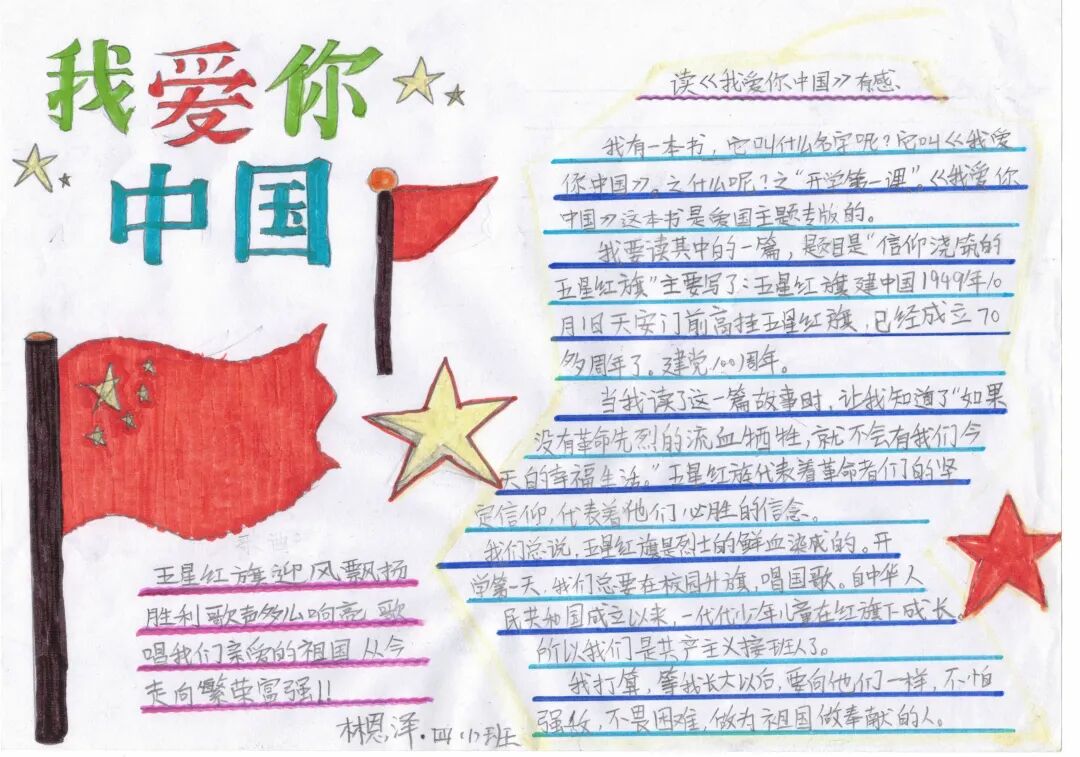 我爱你
中国
读《我爱你中国》有感
我有一本书，它叫什么名字呢？它叫《我爱
你中国》。之什么呢？之“开学第一课”。《我爱你
中国》这本书是爱国主题专版的。
我要读其中的一篇，题目是“信仰浇筑的
五星红旗”主要写了：五星红旗建中国1949年10
月1日天安门前高挂五星红旗，已经成立70
多周年了。建党100周年。
当我读了这一篇故事时，让我知道了“如果
没有革命先烈的流血牺牲，就不会有我们今
天的幸福生活。”五星红旗代表着革命者们的坚
定信仰，代表着他们必胜的信念。
我们总说，五星红旗是烈士的鲜血染成的。开
学第一天，我们总要在校园升旗，唱国歌。自中华人
民共和国成立以来，一代代少年儿童在红旗下成长。
所以我们是共产主义接班人了。
我打算，等我长大以后，要向他们一样，不怕
强敌，不畏困难，做为祖国做奉献的人。
五星红旗迎风飘扬
胜利歌声多么响亮 歌
唱我们亲爱的祖国 从今
走向繁荣富强！！
林恩泽·四(1)班